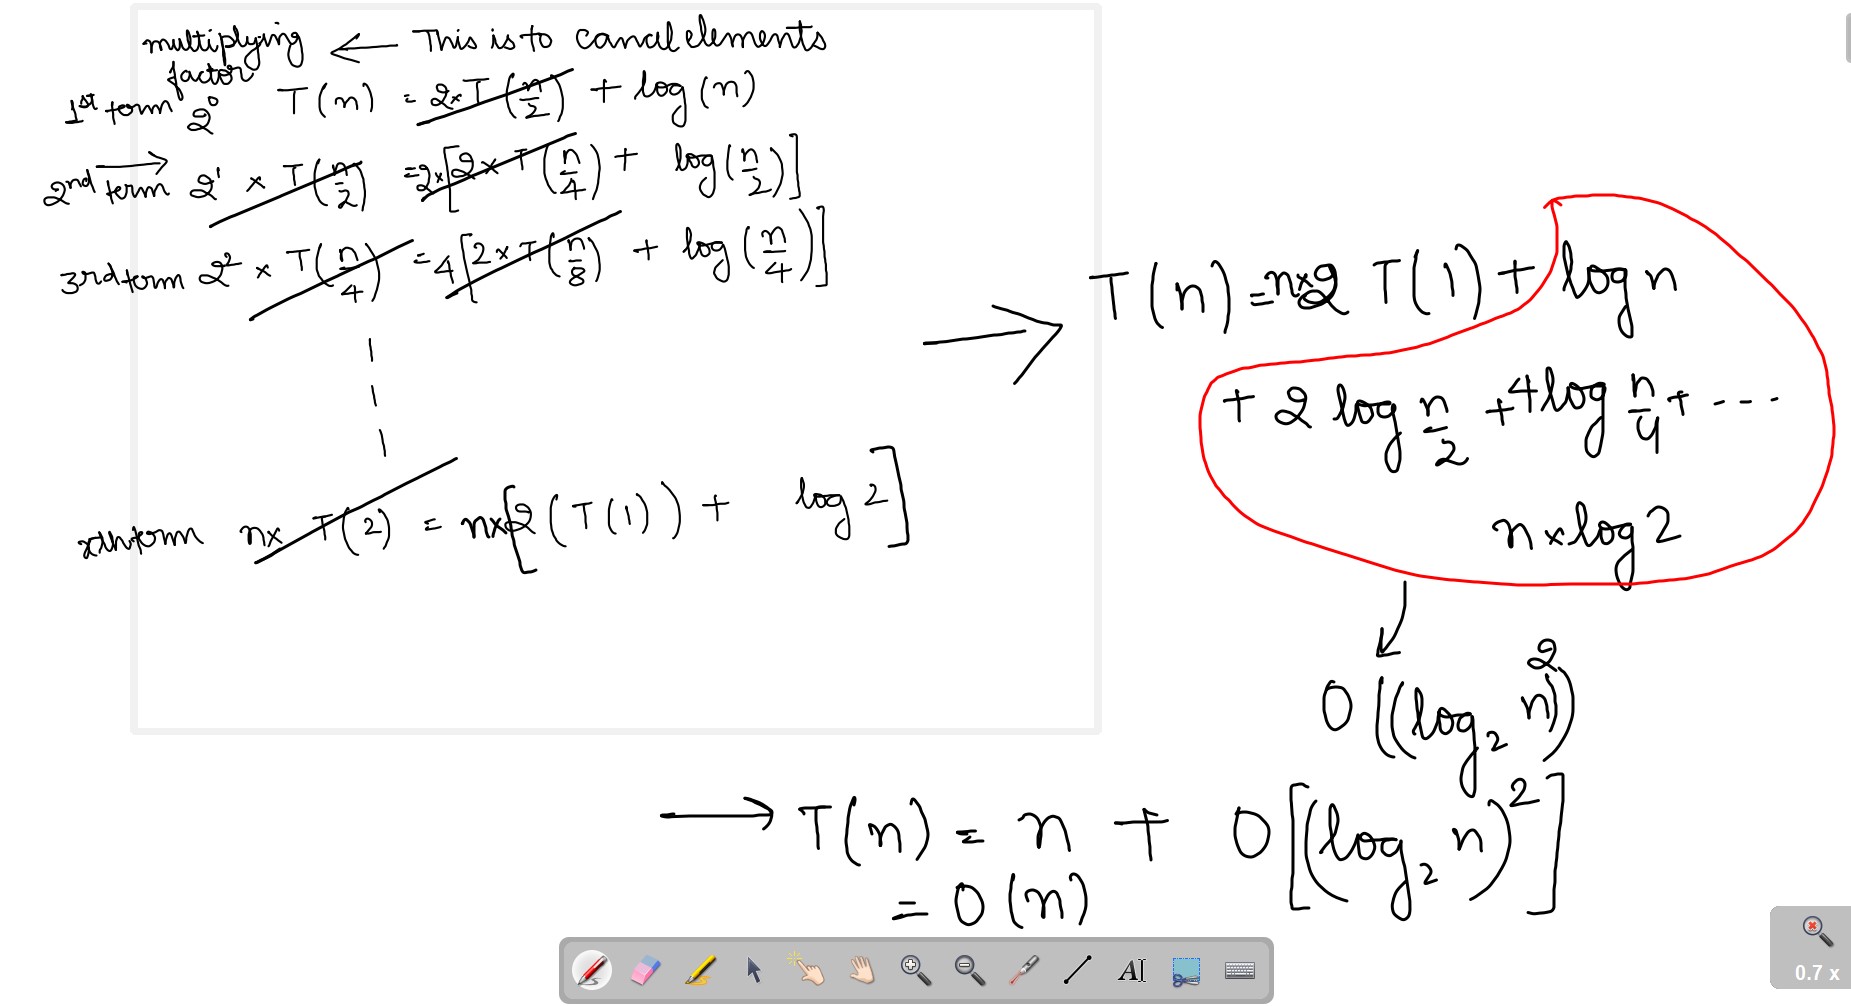 multiplying factor ← This is to cancel elements
1st term 2^0 T(n) = 2×T(n/2) + log(n)
2nd term 2^1 × T(n/2) = 2×[2×T(n/4) + log(n/2)]
3rd term 2^2 × T(n/4) = 4[2×T(n/8) + log(n/4)]
xth term n× T(2) = n×[2(T(1)) + log 2]
T(n) = n×2 T(1) + log n
+ 2 log n/2 + 4 log n/4 + ---
n×log 2
O((log_2 n)^2)
→ T(n) = n + O[(log_2 n)^2]
= O(n)
AI
0.7 x